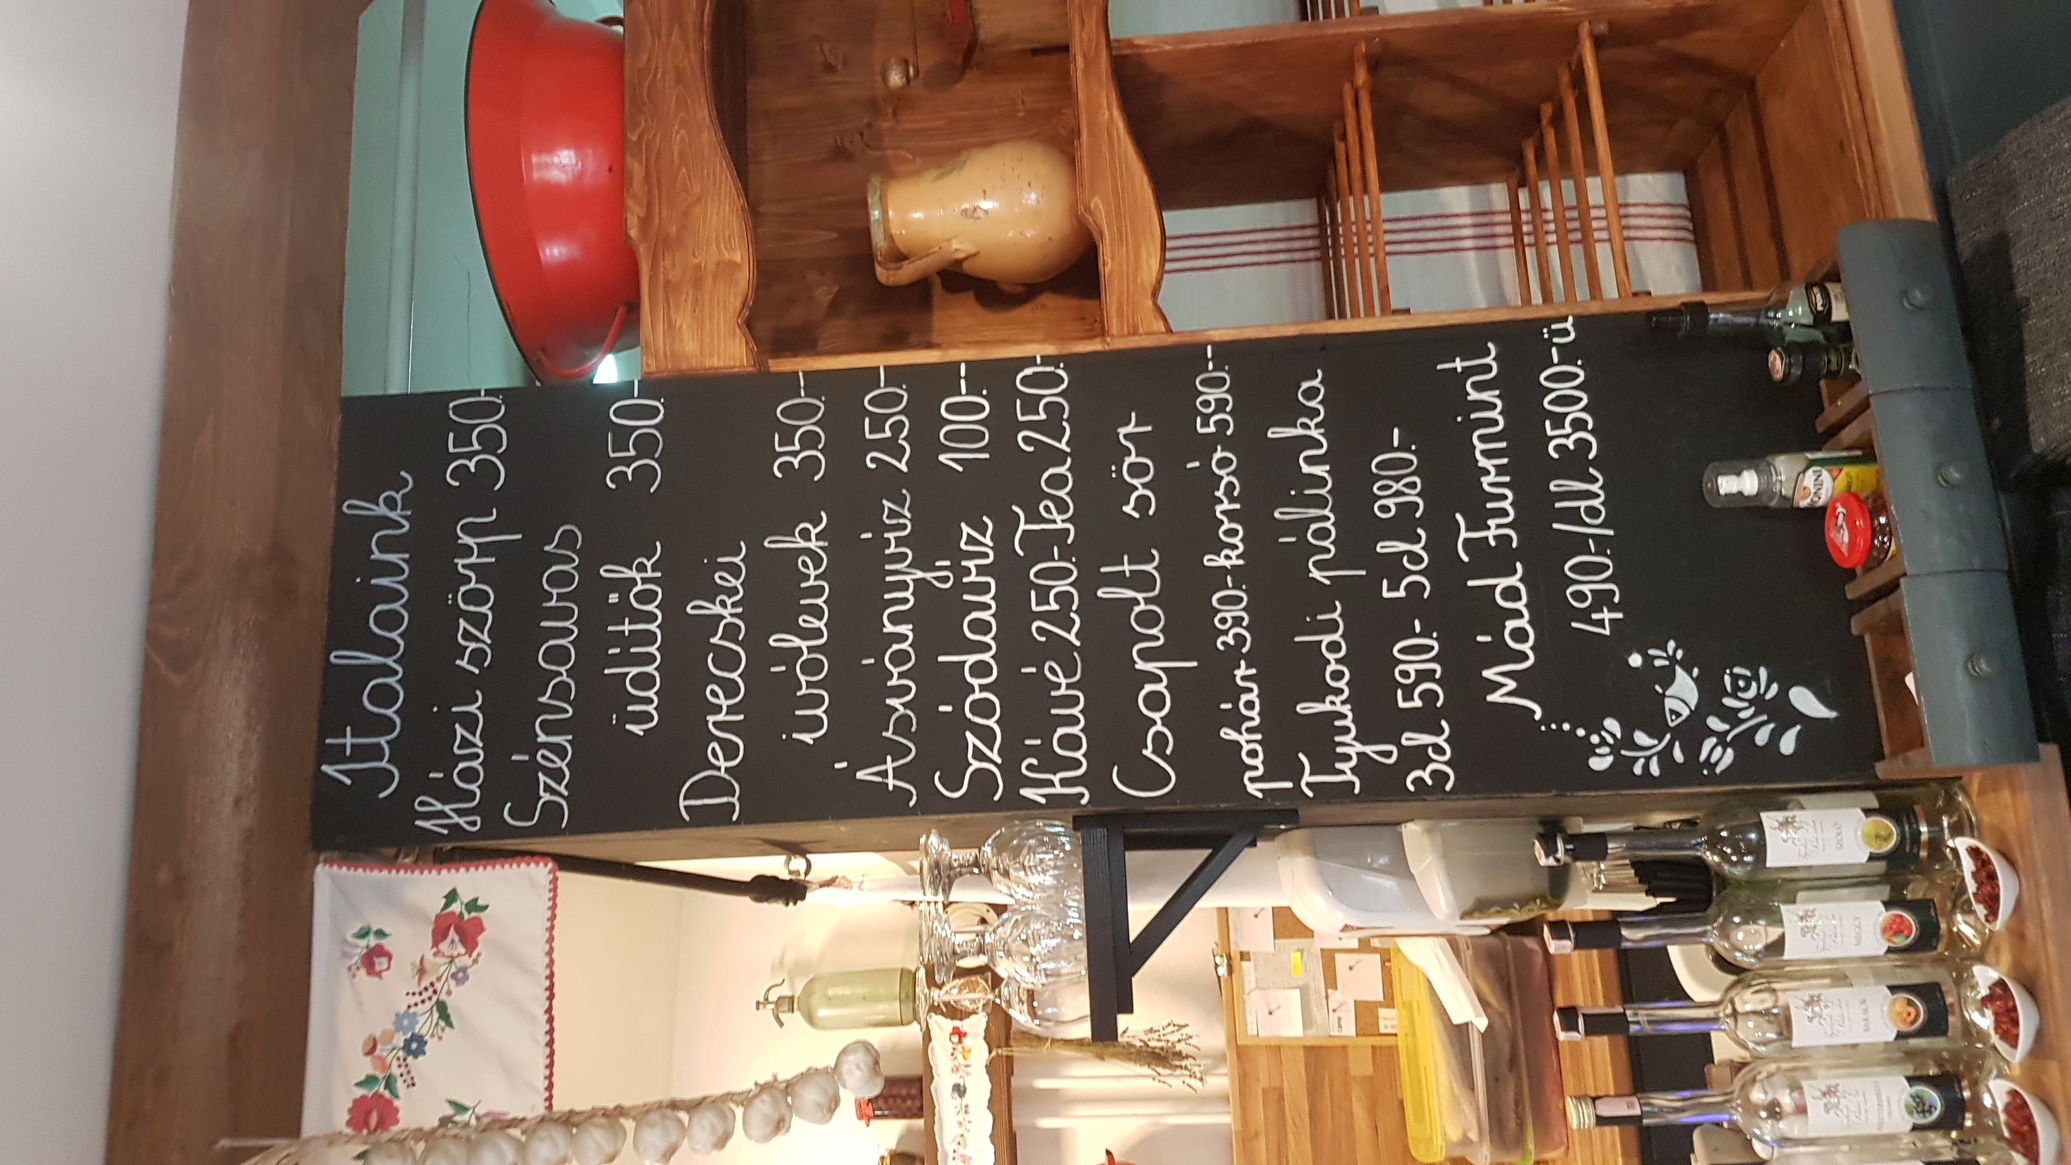 Italaink
Házi szörp 350.-
Szénsavas
üdítők 350.-
Derecskei
ivólevek 350.-
Ásványvíz 250.-
Szódavíz 100.-
Kávé 250.-Tea 250.-
Csapolt sör
pohár 390.- korsó 590.-
Tyukodi pálinka
3cl 590.- 5cl 980.-
Mád Furmint
490.-/dl 3500.-ü
SZŐLŐ
MEGGY
BARACK